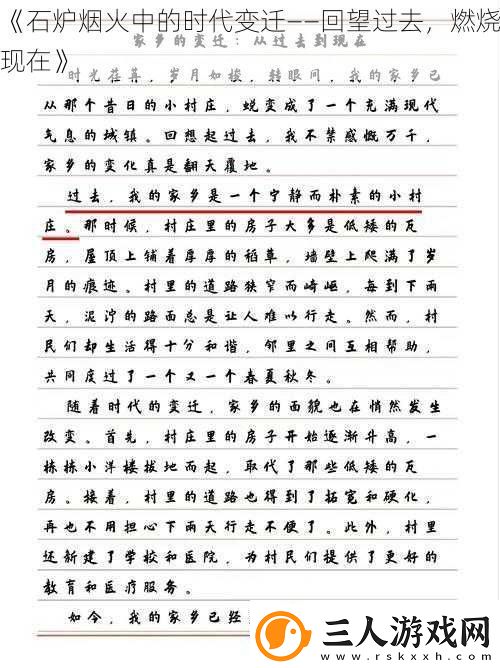 《石炉烟火中的时代变迁——回望过去，燃烧
现在》
家乡的变迁：从过去到现在
时光荏苒，岁月如梭，转眼间，我的家乡已
从那个昔日的小村庄，蜕变成了一个充满现代
气息的城镇。回想起过去，我不禁感慨万千，
家乡的变化真是翻天覆地。
过去，我的家乡是一个宁静而朴素的小村
庄。那时候，村庄里的房子大多是低矮的瓦
房，屋顶上铺着厚厚的稻草，墙壁上爬满了岁
月的痕迹。村里的道路狭窄而崎岖，每到下雨
天，泥泞的路面总是让人难以行走。然而，村
民们却生活得十分和谐，邻里之间互相帮助，
共同度过了一个又一个春夏秋冬。
随着时代的变迁，家乡的面貌也在悄然发生
改变。首先，村庄里的房子开始逐渐升高，一
栋栋小洋楼拔地而起，取代了那些低矮的瓦
房。接着，村里的道路也得到了拓宽和硬化，
再也不用担心下雨天行走不便了。此外，村里
还新建了学校和医院，为村民们提供了更好的
教育和医疗服务。
如今，我的家乡已经
三人游戏网
www.rskxxh.com